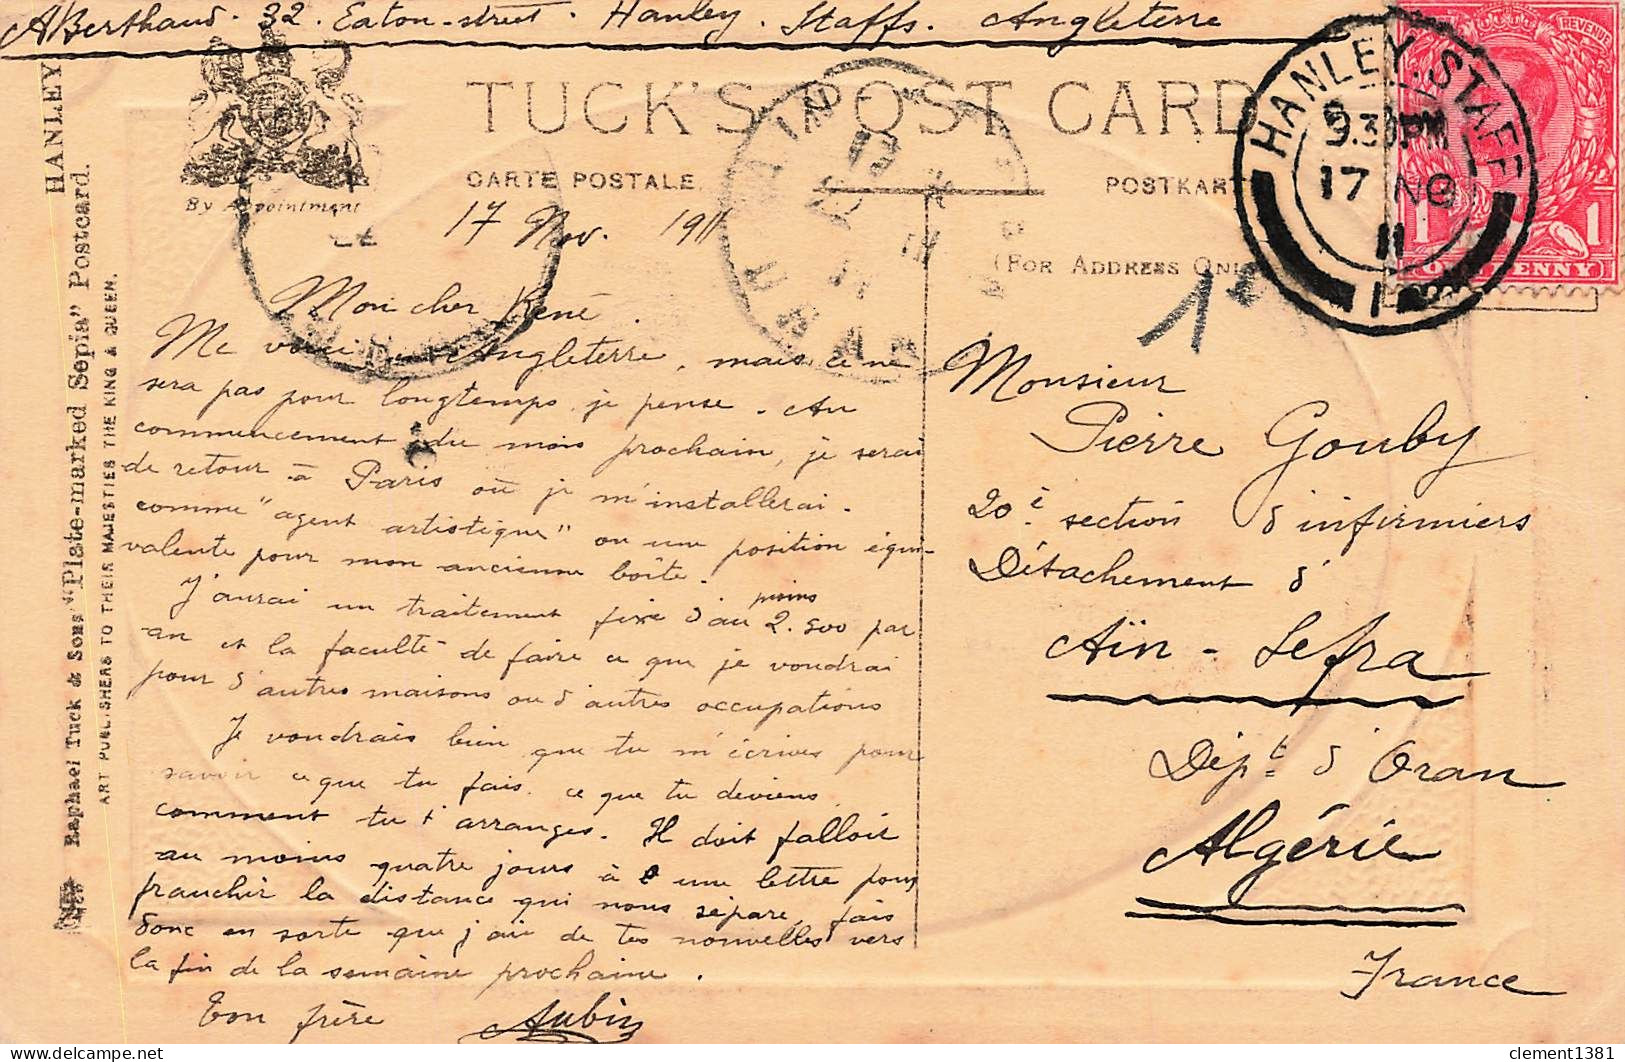 A Berthaud. 32. Eaton-street. Hanley. Staffs. Angleterre
TUCK'S POST CARD
CARTE POSTALE.
POSTKART
By Appointment
(FOR ADDRESS ONL
HANLEY
Raphael Tuck & Sons' "Plate-marked Sepia" Postcard.
ART PUBLISHERS TO THEIR MAJESTIES THE KING & QUEEN.
HANLEY. STAFF
9.30PM
17 NO
11
1
REVENUE
1 1
ONE PENNY
17 Nov. 1911
Mon cher René.
Me voici en Angleterre, mais ce ne
sera pas pour longtemps, je pense. Au
commencement du mois prochain, je serai
de retour à Paris où je m'installerai.
comme "agent artistique" ou une position équi-
valente pour mon ancienne boîte.
J'aurai un traitement fixe d'au moins 2.500 par
an et la faculté de faire ce que je voudrai
pour d'autres maisons ou d'autres occupations
Je voudrais bien que tu m'écrives pour
savoir ce que tu fais, ce que tu deviens,
comment tu t'arranges. Il doit falloir
au moins quatre jours à une lettre pour
franchir la distance qui nous sépare, fais
donc en sorte que j'aie de tes nouvelles vers
la fin de la semaine prochaine.
Ton frère Aubin
Monsieur
Pierre Gouby
20è section d'infirmiers
Détachement d'
Aïn-Sefra
Dépt d'Oran
Algérie
France
clement1381